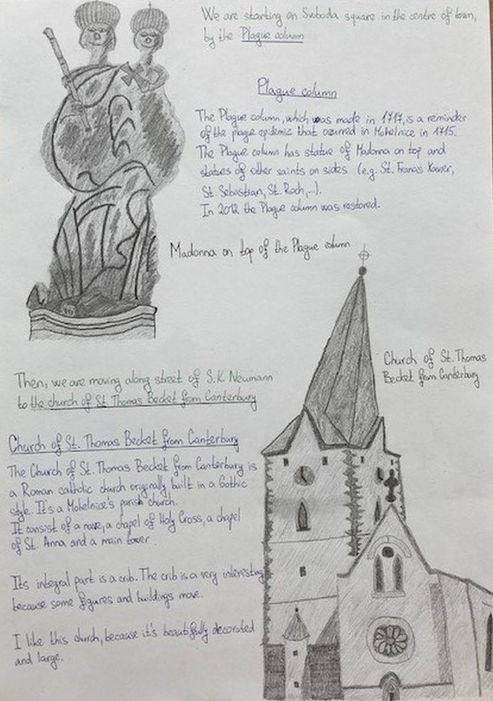 We are starting on Svoboda square in the centre of town,
by the Plague column
Plague column
The Plague column, which was made in 1717, is a reminder
of the plague epidemic that occurred in Mohelnice in 1715.
The Plague column has statue of Madonna on top and
statues of other saints on sides (e.g. St. Francis Xaver,
St. Sebastian, St. Roch,...).
In 2012 the Plague column was restored.
Madonna on top of the Plague column
Church of St. Thomas
Becket from Canterbury
Then, we are moving along street of S. K. Neumann
to the church of St Thomas Becket from Canterbury
Church of St. Thomas Becket from Canterbury
The Church of St. Thomas Becket from Canterbury is
a Roman catholic church originally built in a Gothic
style. It's a Mohelnice's parish church.
It consist of a nave, a chapel of Holy Cross, a chapel
of St. Anna and a main tower.
Its integral part is a crib. The crib is a very interesting
because some figures and buildings move.
I like this church, because it's beautifully decorated
and large.